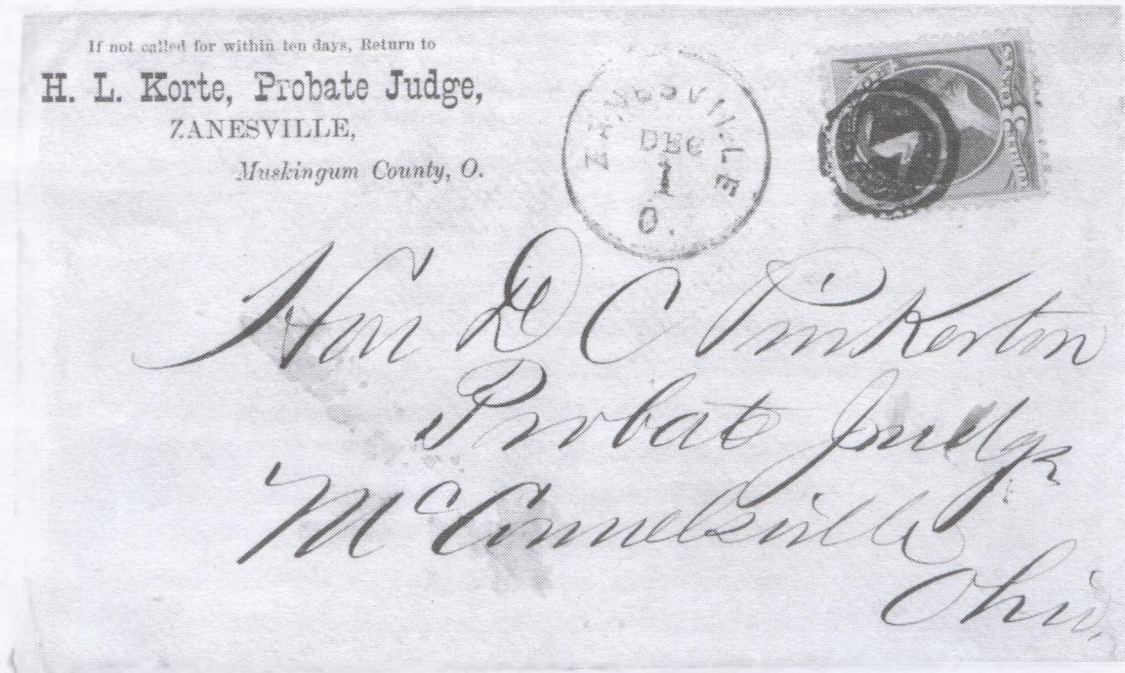 If not called for within ten days, Return to
H. L. Korte, Probate Judge,
ZANESVILLE,
Muskingum County, O.
ZANESVILLE
DEC
1
O.
Hon D C Pinkerton
Probate Judge
McConnelsville
Ohio,